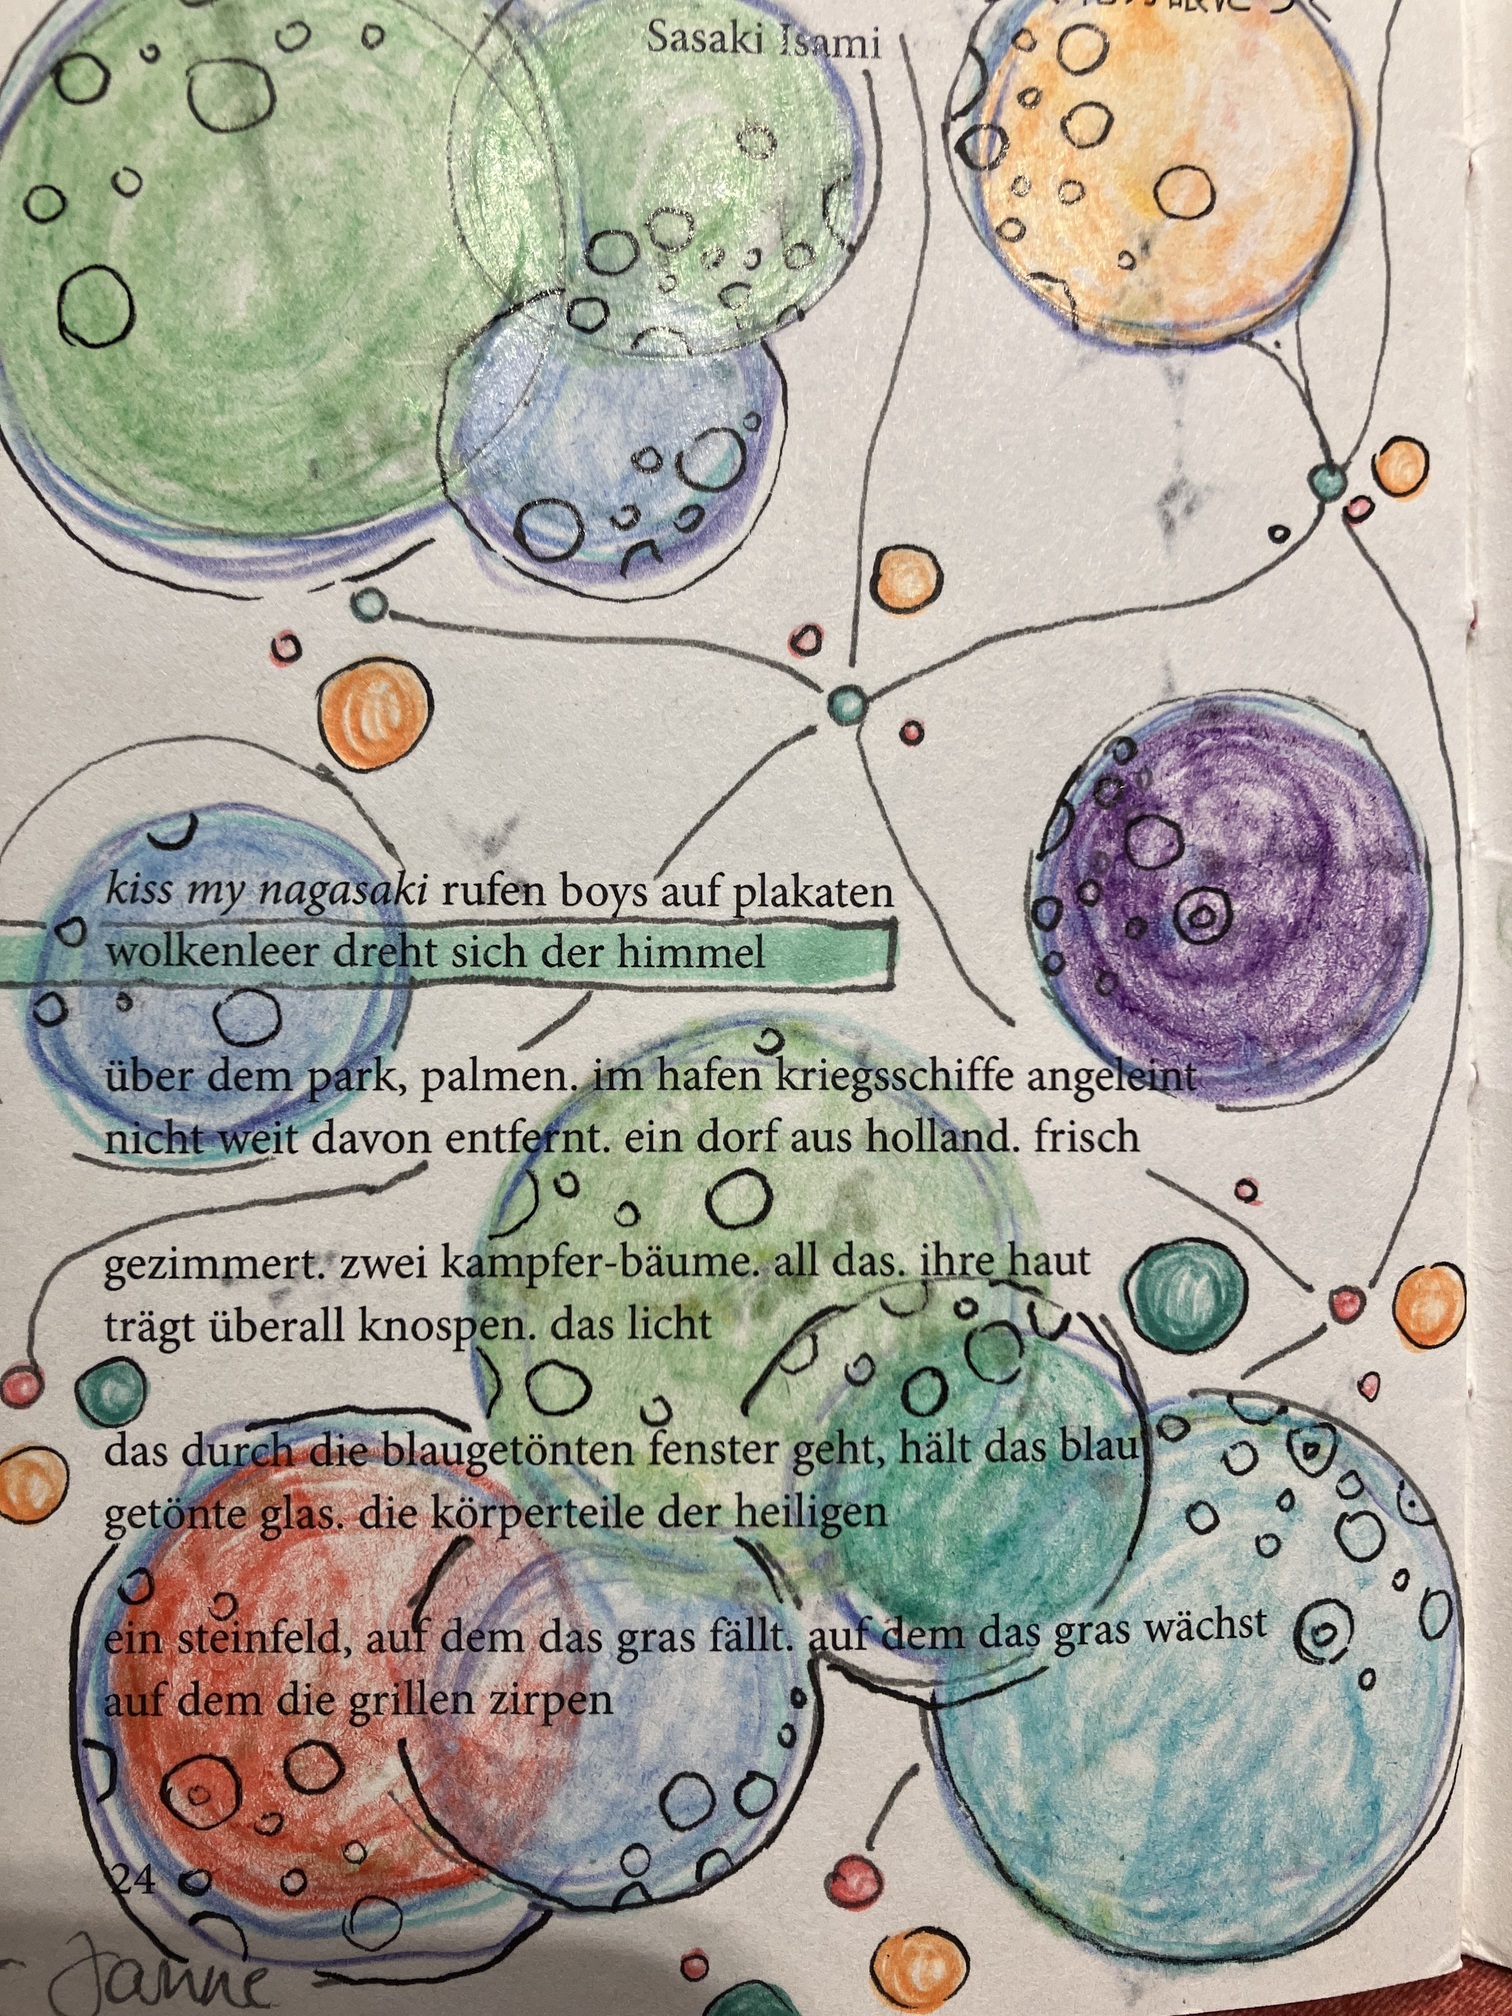 Sasaki Isami
kiss my nagasaki rufen boys auf plakaten
wolkenleer dreht sich der himmel
über dem park, palmen. im hafen kriegsschiffe angeleint
nicht weit davon entfernt. ein dorf aus holland. frisch
gezimmert. zwei kampfer-bäume. all das. ihre haut
trägt überall knospen. das licht
das durch die blaugetönten fenster geht, hält das blau
getönte glas. die körperteile der heiligen
ein steinfeld, auf dem das gras fällt. auf dem das gras wächst
auf dem die grillen zirpen
24
Janne